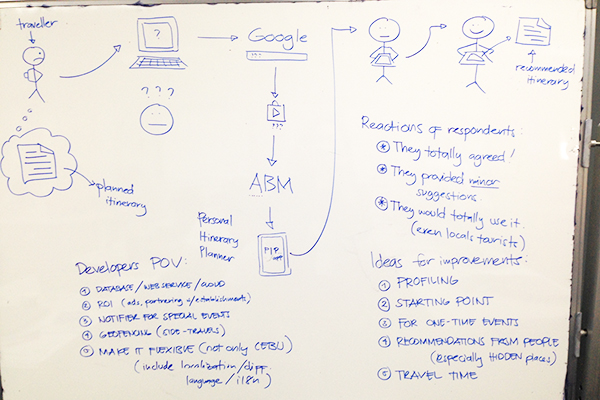 traveller
?
? ? ?
planned
itinerary
Google
???
ABM
Personal
Itinerary
Planner
PIP
app
recommended
itinerary
Reactions of respondents:
* They totally agreed!
* They provided minor
suggestions.
* They would totally use it.
(even locals tourists)
Ideas for improvements:
① PROFILING
② STARTING POINT
③ FOR ONE-TIME EVENTS
④ RECOMMENDATIONS FROM PEOPLE
(especially HIDDEN places)
⑤ TRAVEL TIME
Developers POV:
① DATABASE/WEB SERVICE/CLOUD
② ROI (ads, partnering w/establishments)
③ NOTIFIER FOR SPECIAL EVENTS
④ GEOFENCING (SIDE-TRAVELS)
⑤ MAKE IT FLEXIBLE (not only CEBU)
(include localization/diff.
language/i18n)